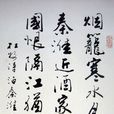 烟籠寒水月
秦淮近酒家
國恨隔江猶
杜牧泊秦淮